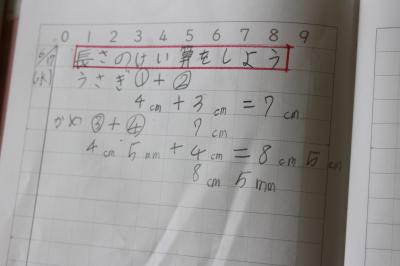 0 1 2 3 4 5 6 7 8 9
長さのけい算をしよう
(水)
うさぎ①+②
4cm+3cm=7cm
7cm
かめ③+④
4cm5mm+4cm=8cm5cm
8cm5mm